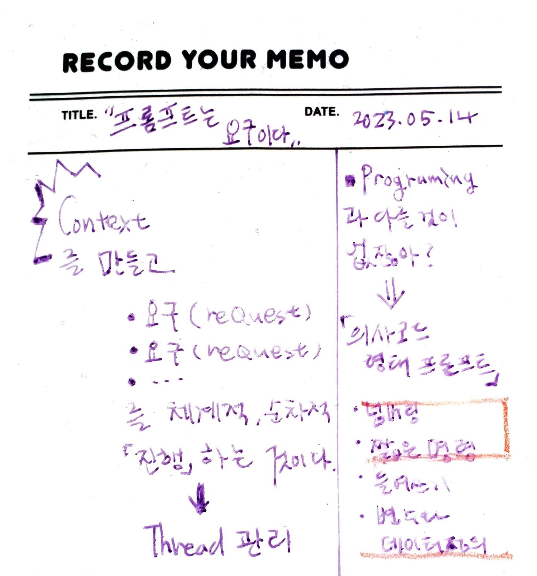 RECORD YOUR MEMO
TITLE. "프롬프트는
요구이다,,
DATE. 2023.05.14
Context
를 만들고
• 요구 (request)
• 요구 (request)
• ...
를 체계적, 순차적
「진행」하는 것이다.
Thread 관리
▪ Programing
과 다를 것이
없잖아?
「의사코드
형태 프롬프트」
• 넘버링
• 짧은 명령
• 들여쓰기
• 변수나
데이터정의